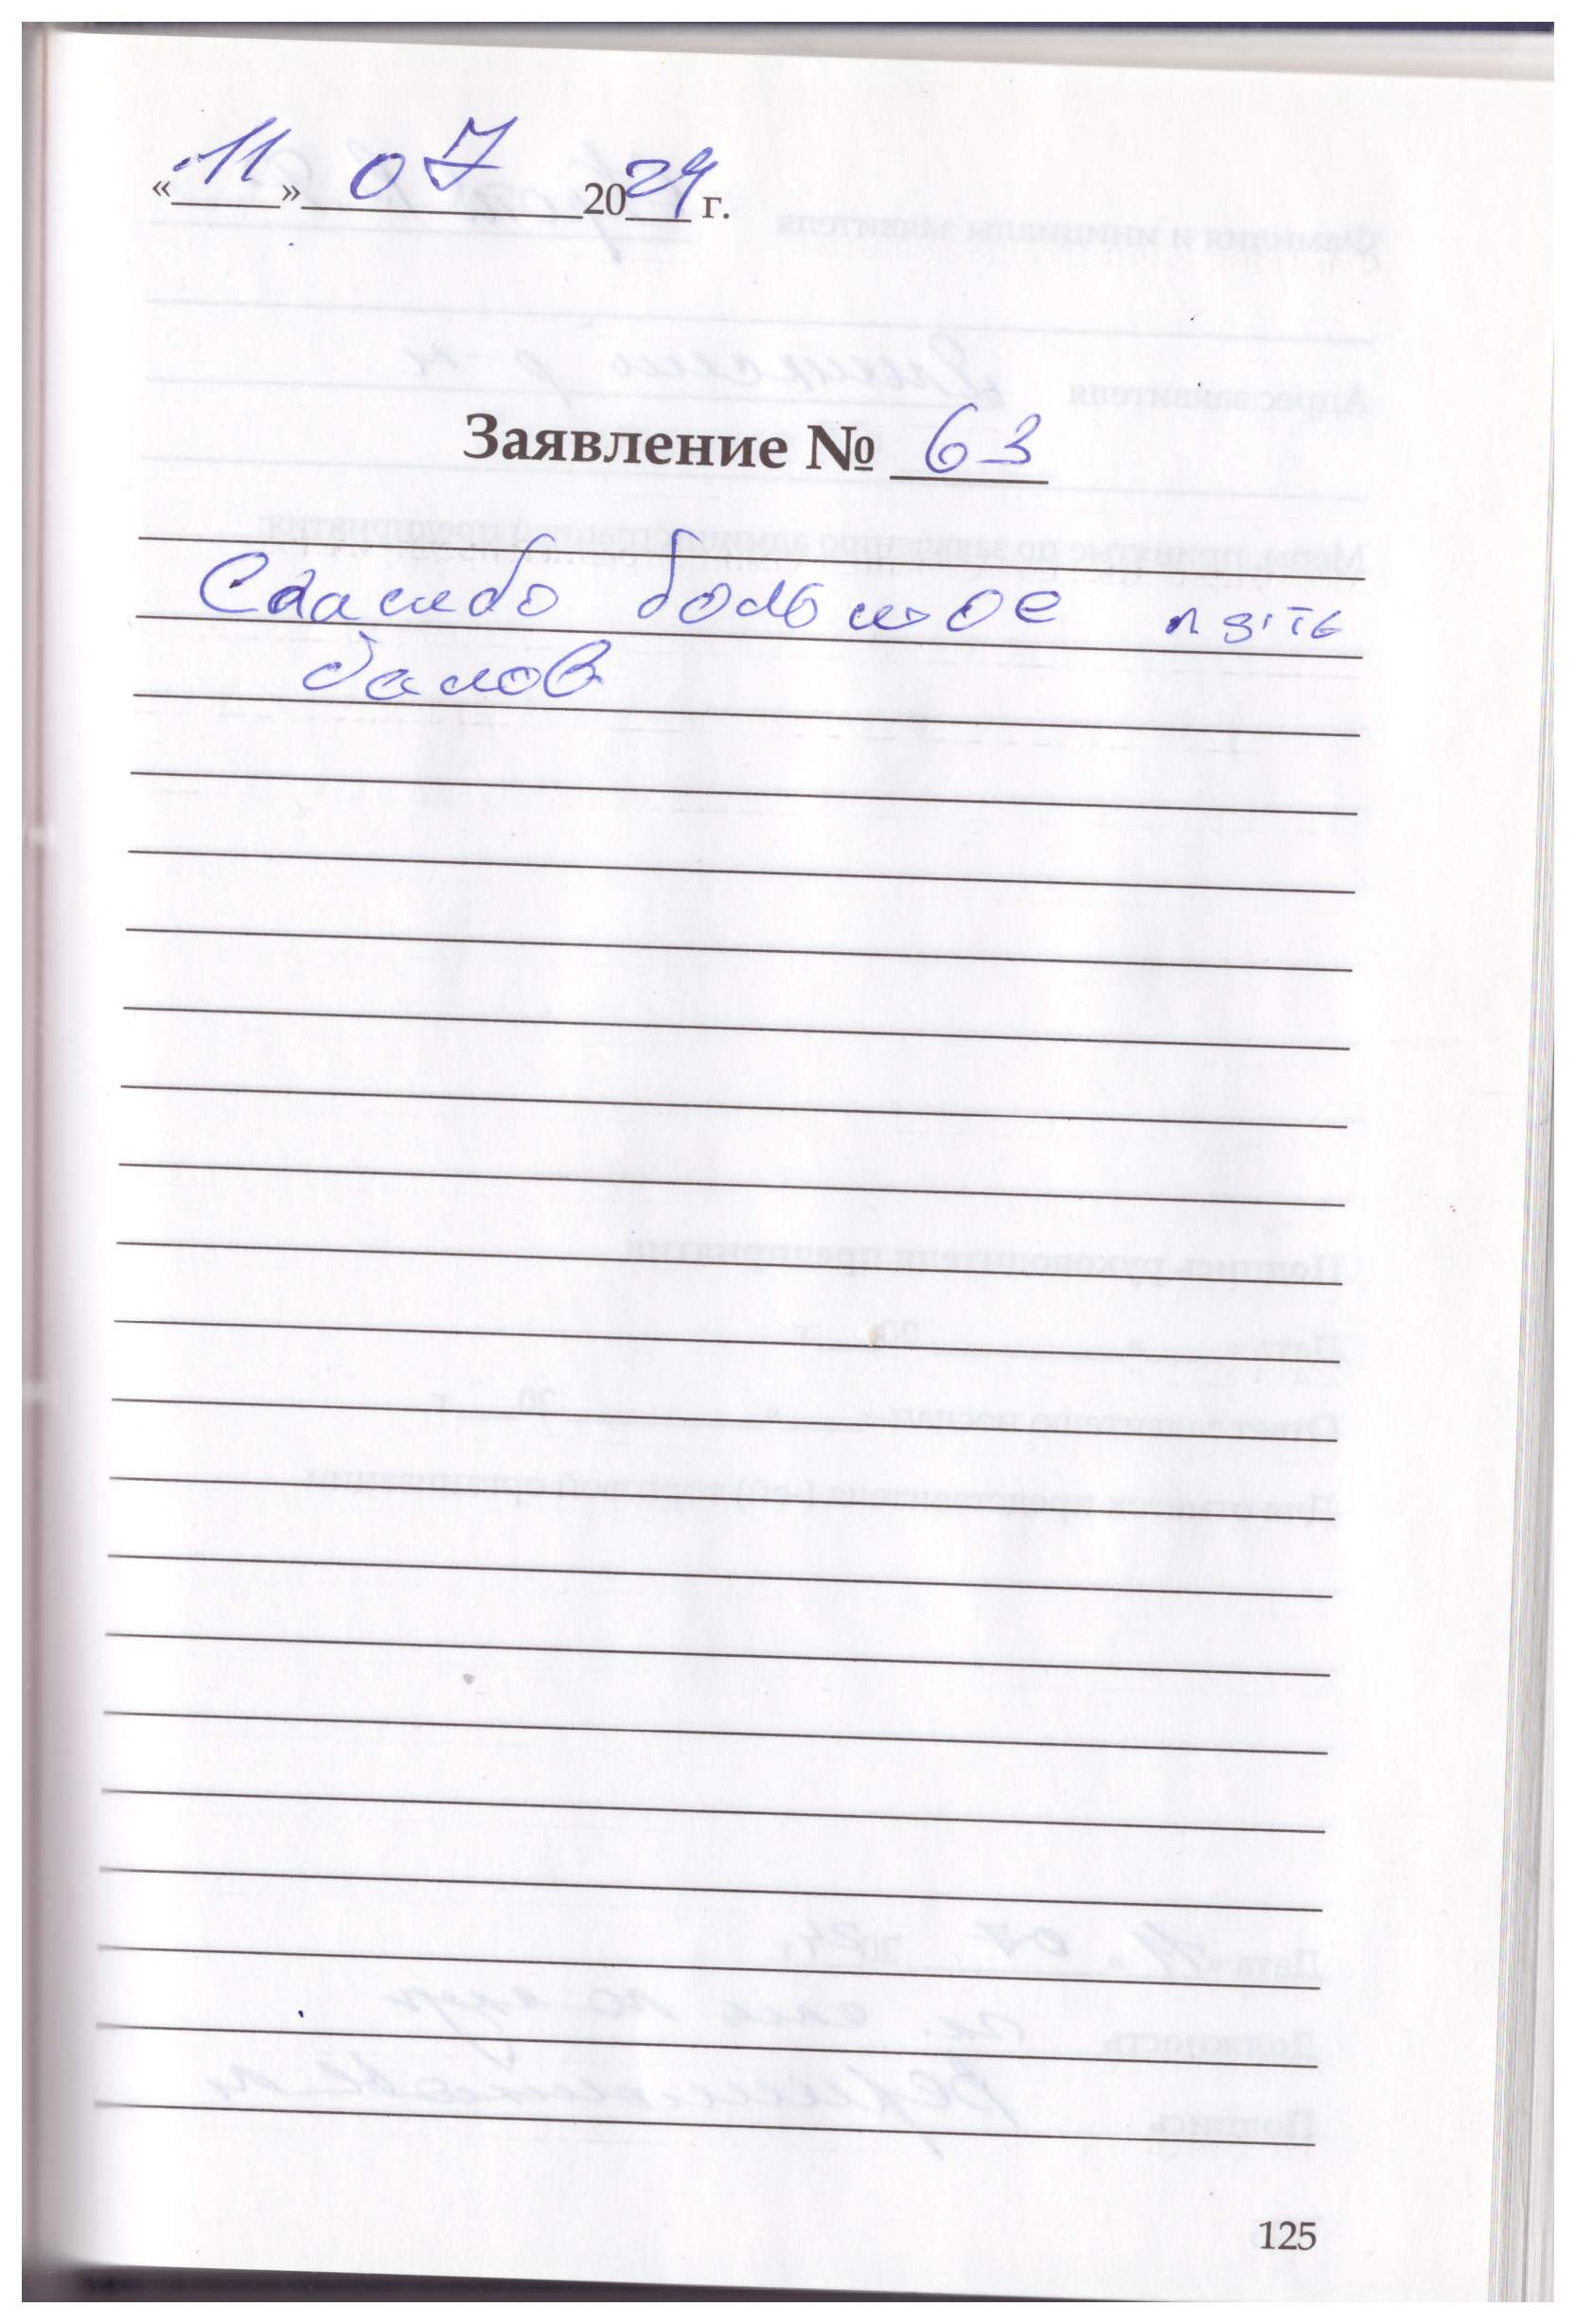 «11» 07 2024 г.
Заявление № 63
Спасибо большое пять
балов
125